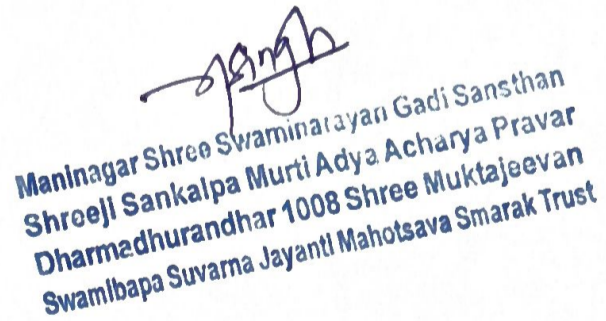 Maninagar Shree Swaminarayan Gadi Sansthan
Shreeji Sankalpa Murti Adya Acharya Pravar
Dharmadhurandhar 1008 Shree Muktajeevan
Swamibapa Suvarna Jayanti Mahotsava Smarak Trust